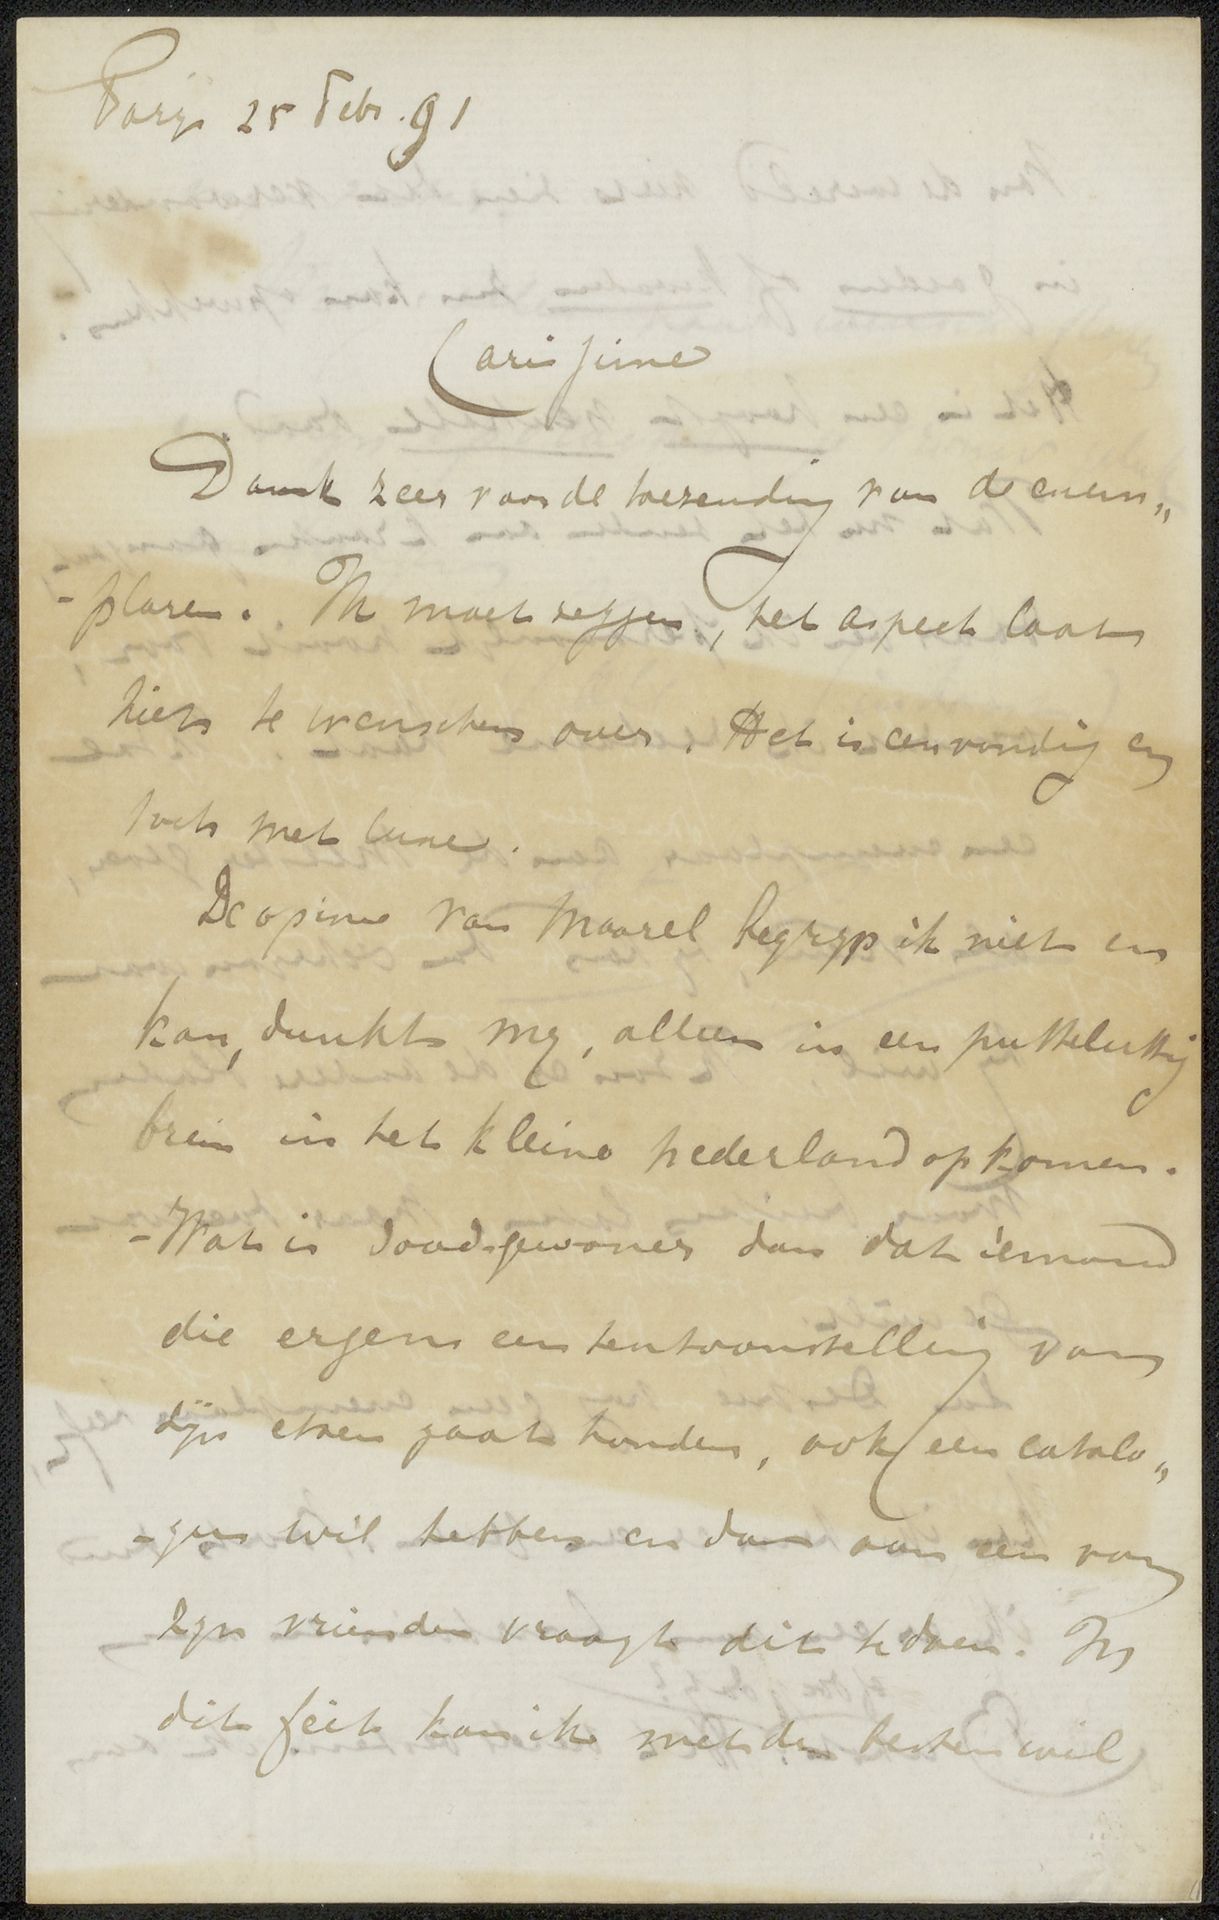 Parijs 25 Febr. 91
Carissime
Dank zeer voor de toezending van de exem„
-plaren. Ik moet zeggen, het aspect laat
niets te wenschen over. Het is eenvoudig en
toch met luxe.
De opinie van Maarel begryp ik niet en
kan, dunkt my, alleen in een puttelustig
brein in het kleine nederland opkomen.
-Wat is doodgewoner dan dat iemand
die ergens een tentoonstelling van
zijn etsen gaat houden, ook een catalo„
-gus wil hebben en dan aan een van
zyn vrienden vraagt dit te doen. In
dit feit kan ik met den besten wil